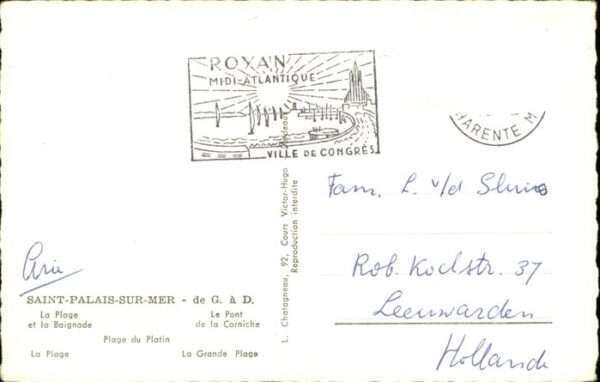 ROYAN
MIDI-ATLANTIQUE
VILLE DE CONGRÈS
ARENTE M
Fam. L. v/d Sluis
Rob. Kochstr. 37
Leeuwarden
Holland
L. Chatagneau, 92, Cours Victor-Hugo
Reproduction interdite
SAINT-PALAIS-SUR-MER - de G. à D.
La Plage
et la Baignade
Le Pont
de la Corniche
Plage du Platin
La Plage
La Grande Plage